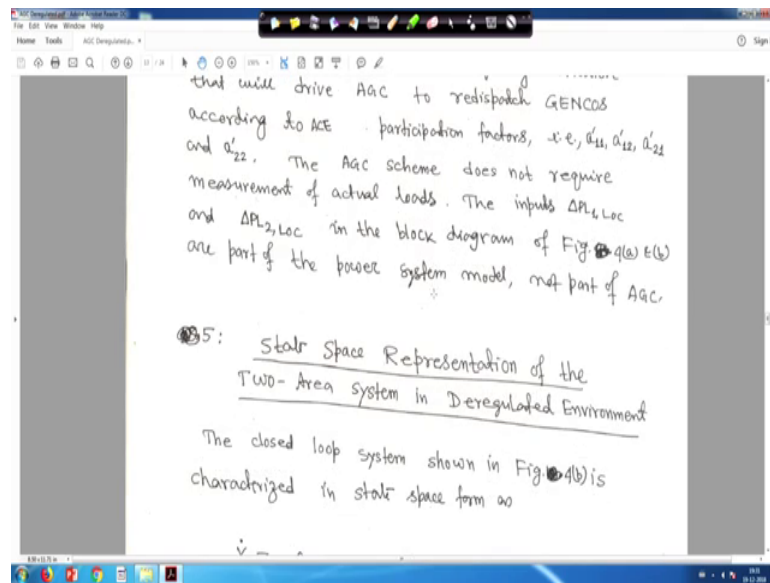 AGC Deregulated.pdf - Adobe Acrobat Reader DC
File Edit View Window Help
Home Tools AGC Deregulated.p... × Sign
13 / 24
that will drive AGC to redispatch GENCOS
according to ACE participation factors, i.e., a'11, a'12, a'21
and a'22. The AGC scheme does not require
measurement of actual loads. The inputs ΔPL1,LOC
and ΔPL2,LOC in the block diagram of Fig. 4(a) & (b)
are part of the power system model, not part of AGC.
5:
State Space Representation of the
Two-Area system in Deregulated Environment
The closed loop system shown in Fig. 4(b) is
characterized in state space form as
8.50 x 11.71 in